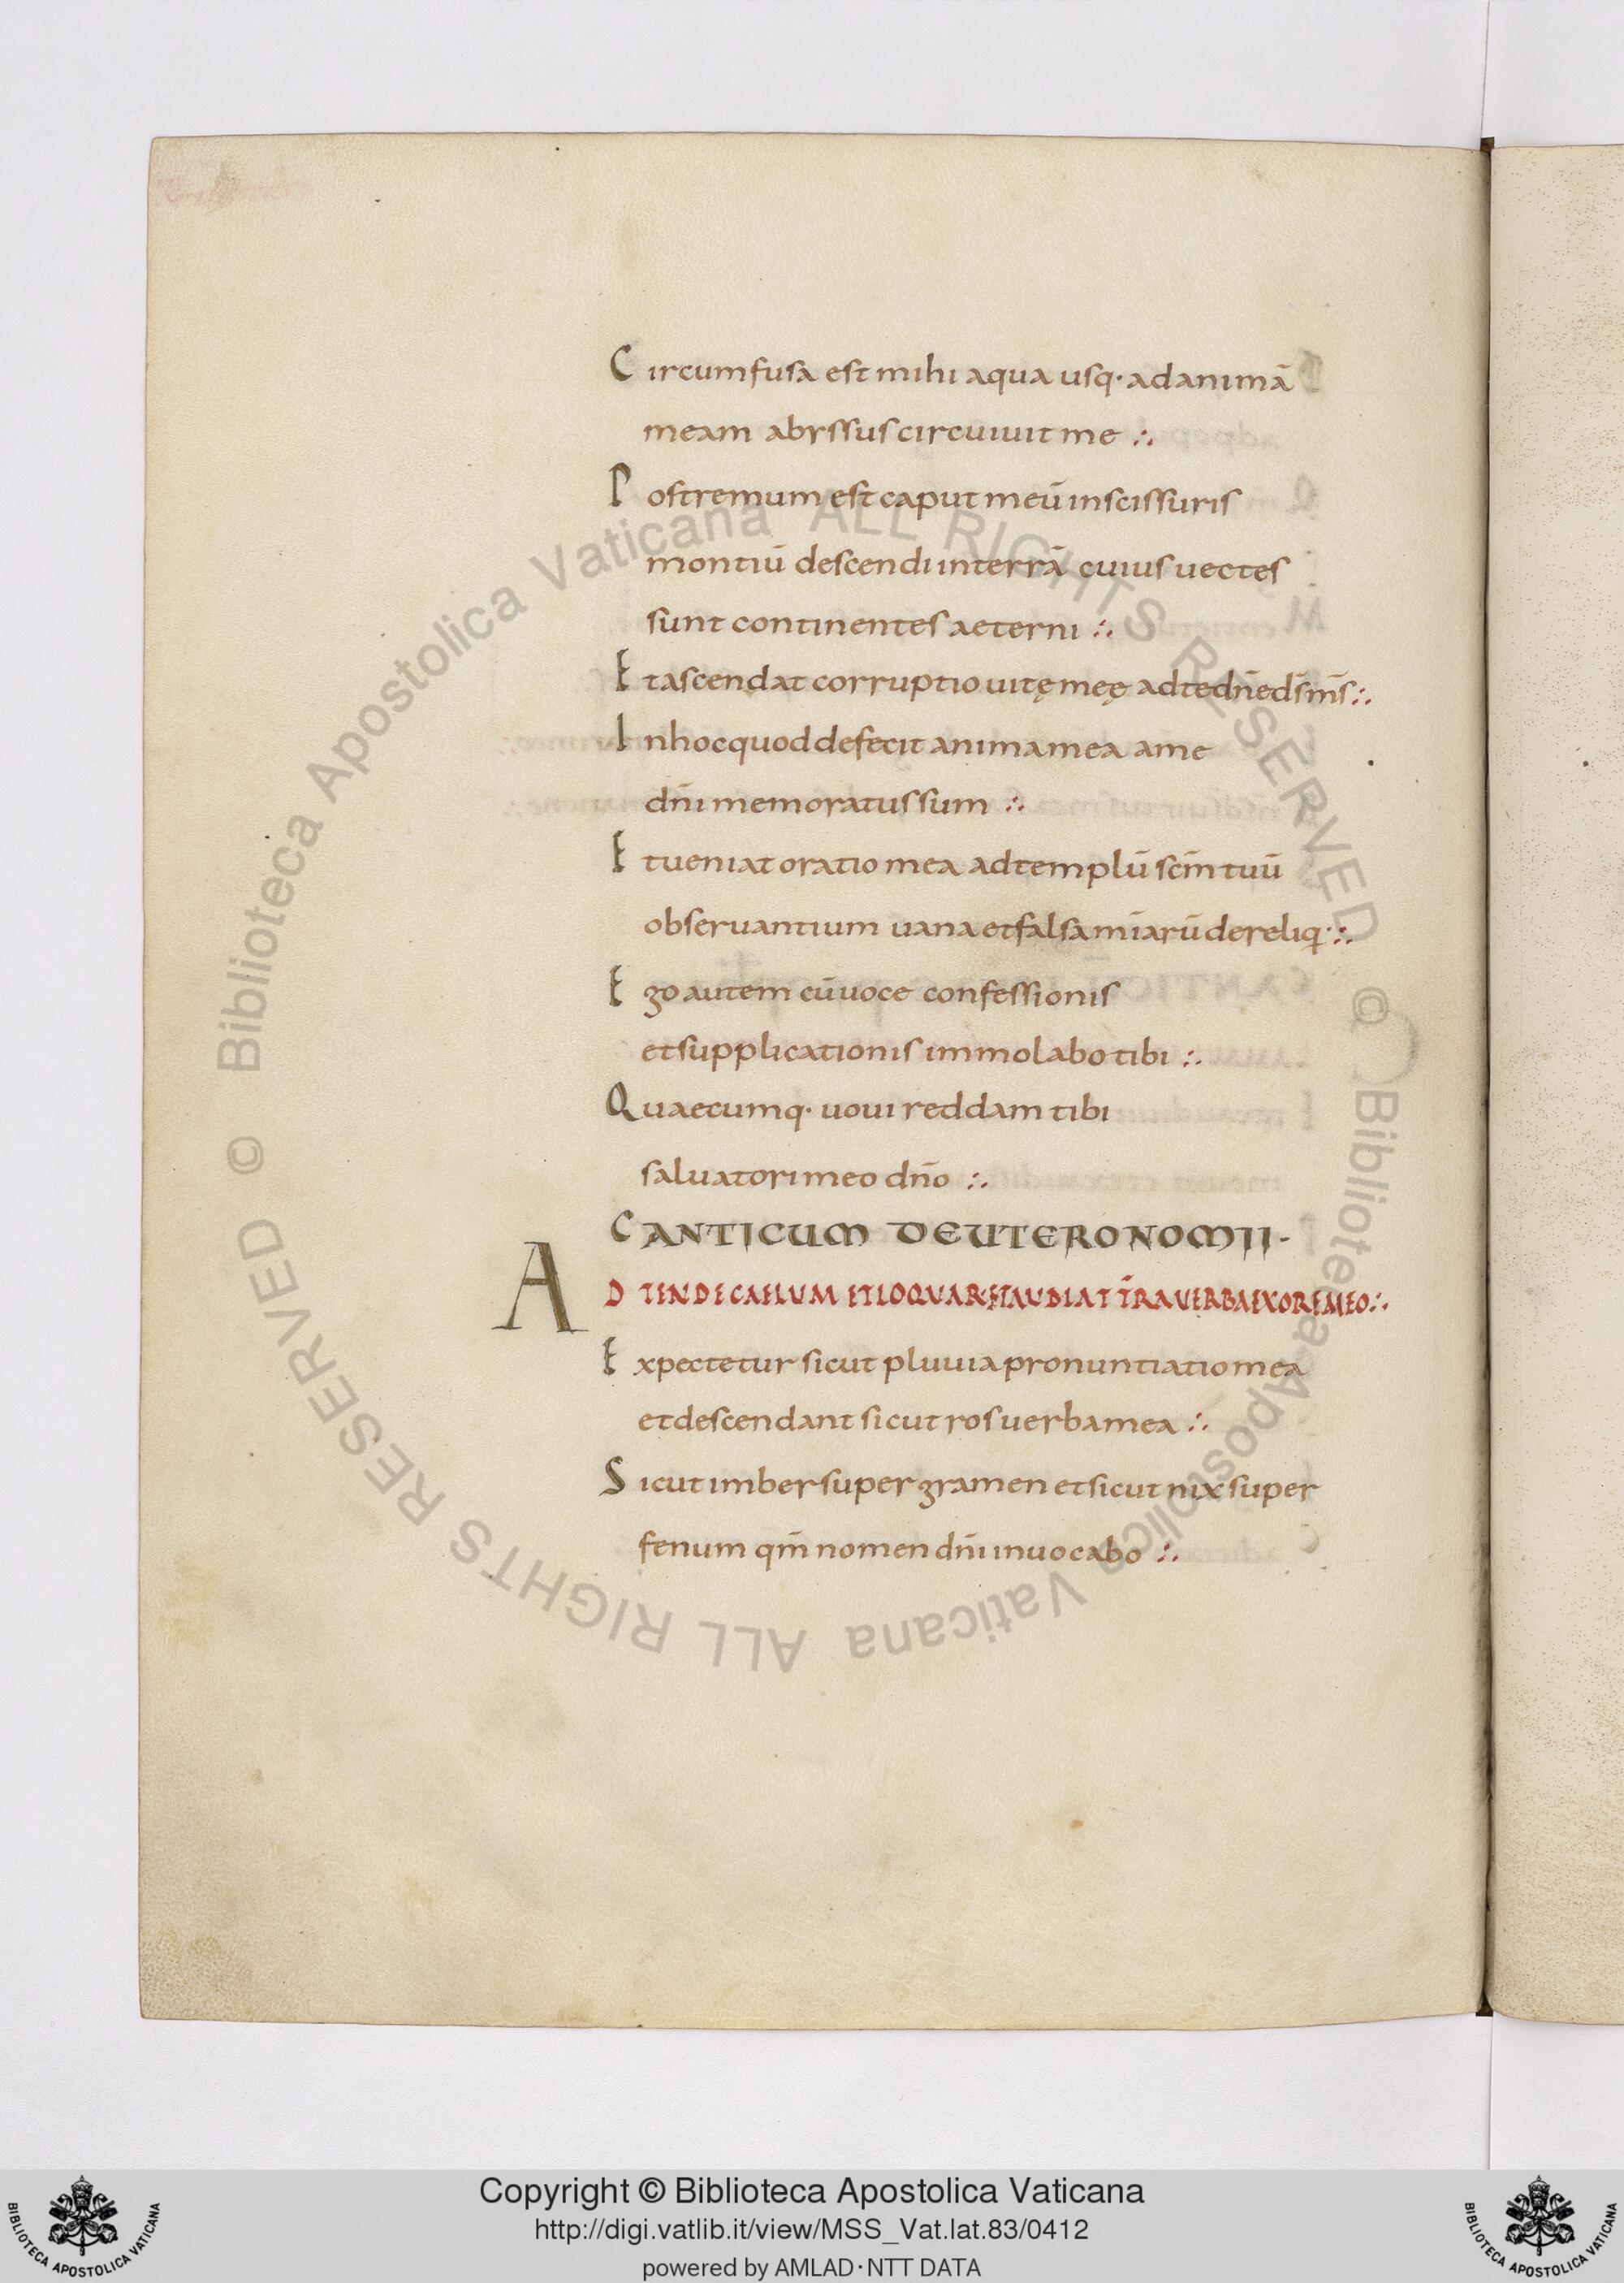 Circumfusa est mihi aqua usq· ad animā
meam abyssus circuiuit me ∴
Postremum est caput meū in scissuris
montiū descendi in terrā cuius uectes
sunt continentes aeterni ∴
Et ascendat corruptio uitę meę ad te dn̄e ds̄ ms̄ ∴
In hoc quod defecit anima mea a me
dn̄i memoratus sum ∴
Et ueniat oratio mea ad templū scm̄ tuū
obseruantium uana et falsa mīarū dereliq· ∴
Ego autem cū uoce confessionis
et supplicationis immolabo tibi ∴
Quaecumq· uoui reddam tibi
saluatori meo dn̄o ∴
CANTICUM DEUTERONOMII·
ADTENDE CAELUM ET LOQUAR ET AUDIAT T̄RA UERBA EX ORE MEO ∴
Expectetur sicut pluuia pronuntiatio mea
et descendant sicut ros uerba mea ∴
Sicut imber super gramen et sicut nix super
fenum qm̄ nomen dn̄i inuocabo ∴
© Biblioteca Apostolica Vaticana ALL RIGHTS RESERVED
© Biblioteca Apostolica Vaticana ALL RIGHTS RESERVED
Copyright © Biblioteca Apostolica Vaticana
http://digi.vatlib.it/view/MSS_Vat.lat.83/0412
powered by AMLAD·NTT DATA
BIBLIOTECA APOSTOLICA VATICANA
BIBLIOTECA APOSTOLICA VATICANA